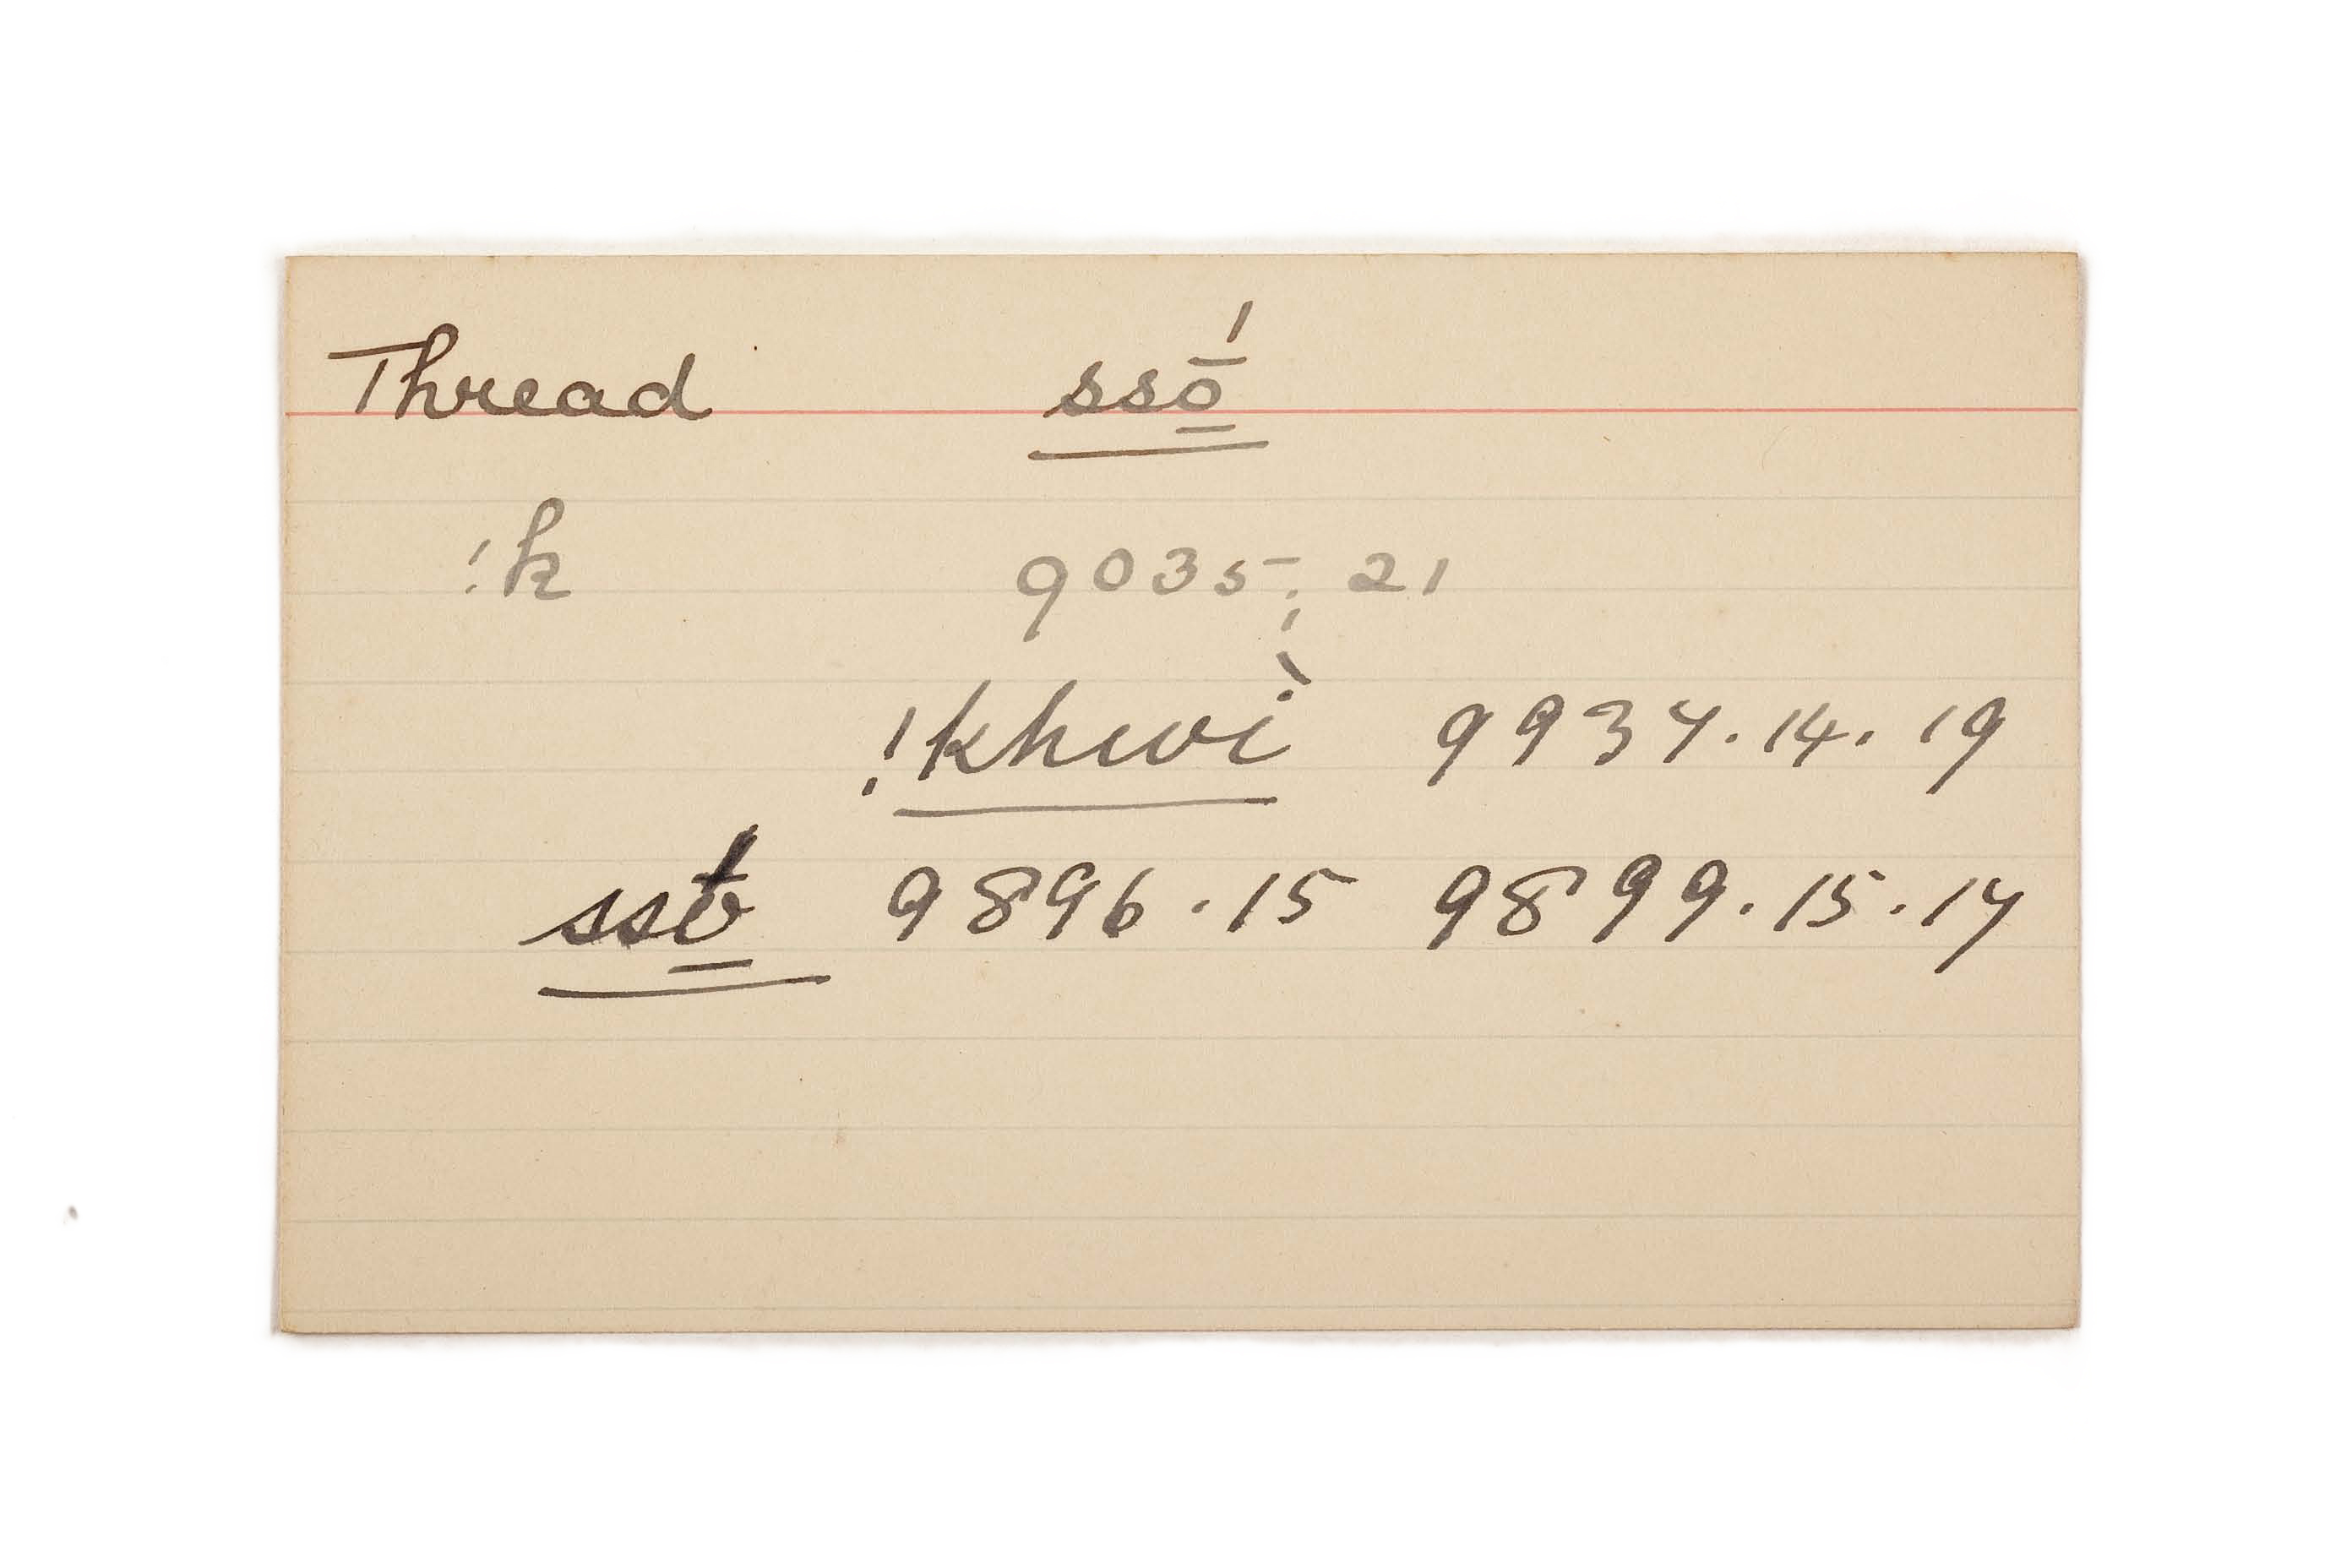 Thread ssṓ̱
!k 9035; 21
!khwì̖ 9937.14.19
ssṓ̱ 9896.15 9899.15.17